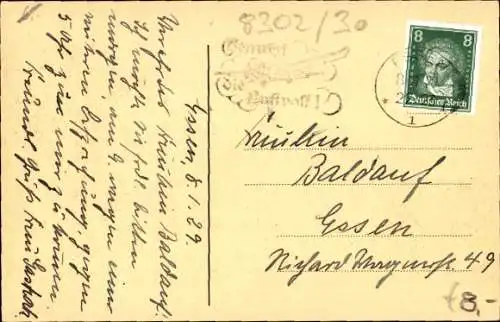 8202/30
Benutzt
die
Luftpost!
8 8
Deutsches Reich
1
Essen 8.1.29.
Wertes Fräulein Baldauf!
Ich möchte Sie frdl. bitten
morgen, am 9. wegen einer
weiteren Besprechung, gegen
5 Uhr zu mir zu kommen.
Freundl. Gruß Frau
Fräulein
Baldauf
Essen
Richard Wagnerstr. 49
8,-